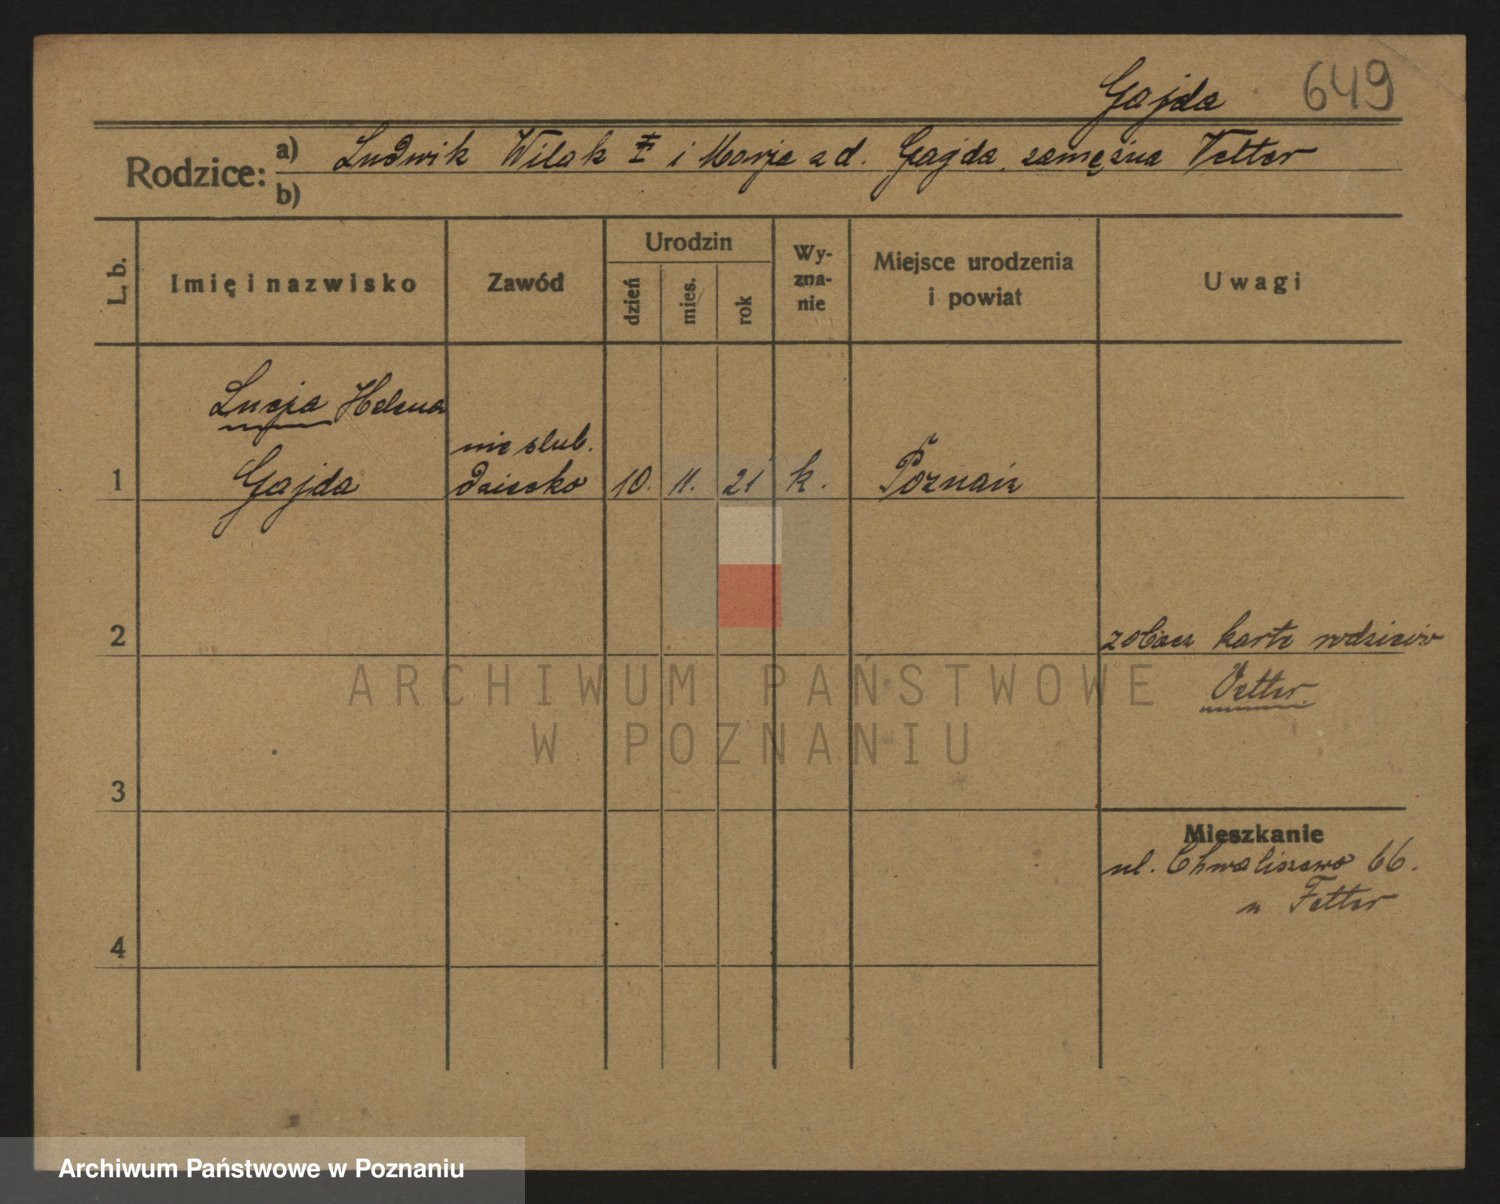 Gajda 649
Rodzice: a) Ludwik Wilak ‡ i Marja zd. Gajda zamężna Vetter
b)
L. b.
Imię i nazwisko
Zawód
Urodzin
dzień
mies.
rok
Wy-
zna-
nie
Miejsce urodzenia
i powiat
Uwagi
Lucja Helena
nieślub.
1 Gajda dziecko 10. 11. 21 k. Poznań
2 zobacz kartę rodziców
Vetter
3
Mieszkanie
ul. Chwaliszewo 66.
u Fetter
4
ARCHIWUM PAŃSTWOWE
W POZNANIU
Archiwum Państwowe w Poznaniu